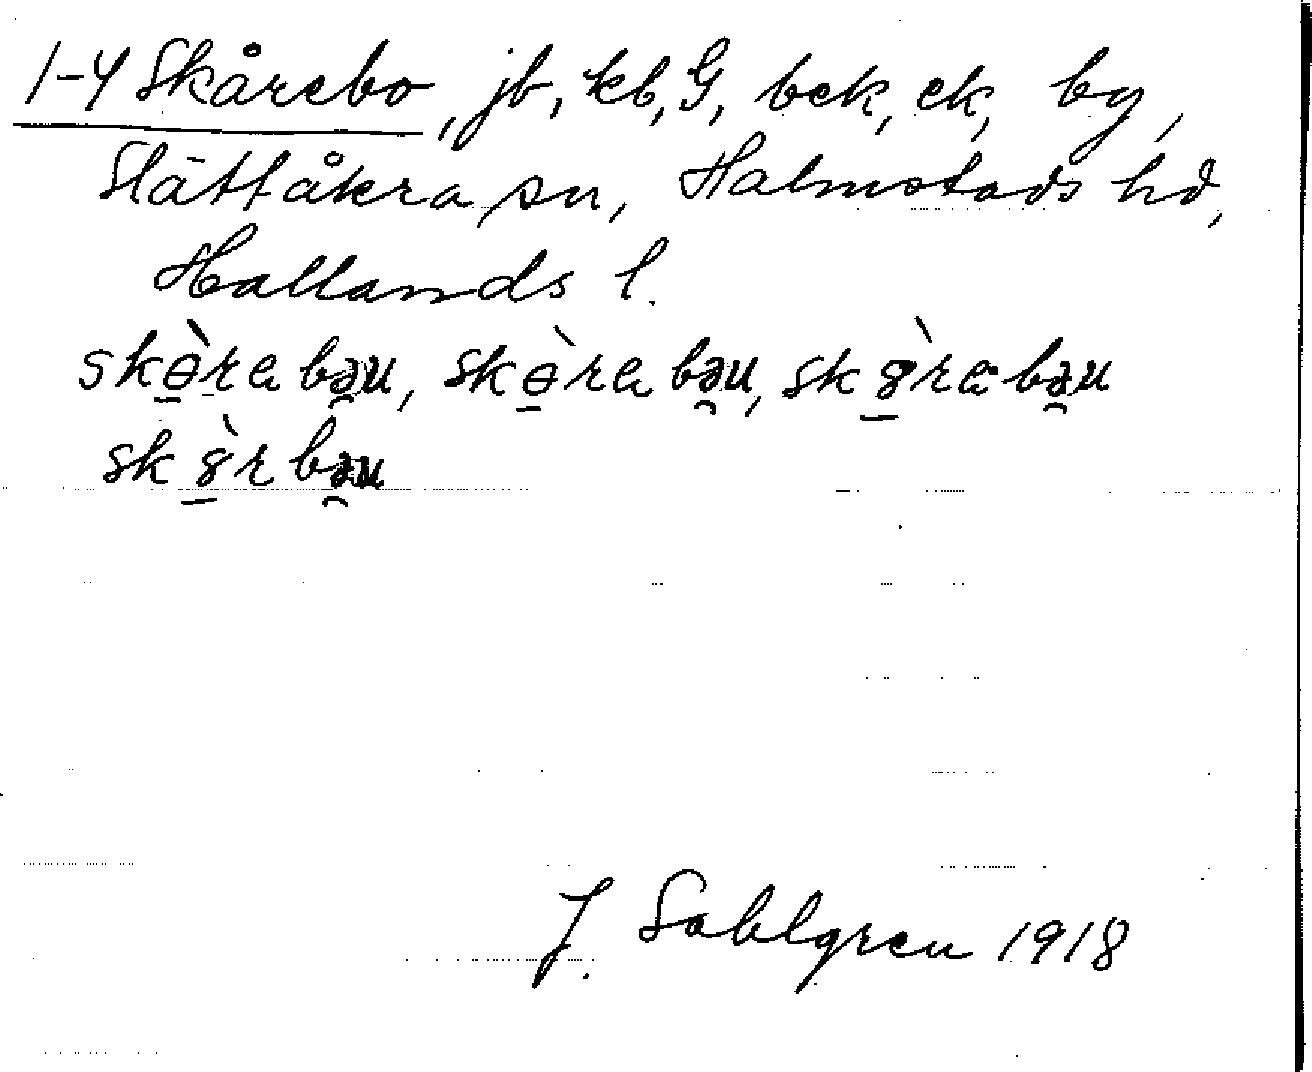 1-4 Skårebo, jb, kb, G, bek, ek, by,
Slättåkra sn, Halmstads hd,
Hallands l.
skɵ̠̀ra bə̯u, skɵ̠̀ra bə̯u, sk8̠̀ra bə̯u
sk8̠̀r bə̯u
J. Sahlgren 1918